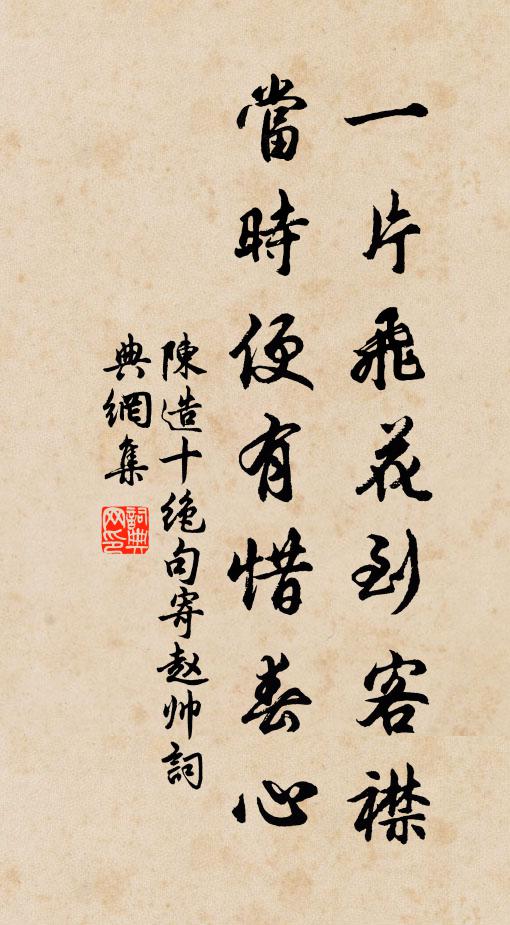 一片飛花到客襟
當時便有惜春心
陳造十絕句寄赵帅詞
典網集
詞典
网印